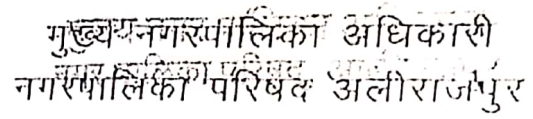 मुख्य नगरपालिका अधिकारी
नगरपालिका परिषद अलीराजपुर